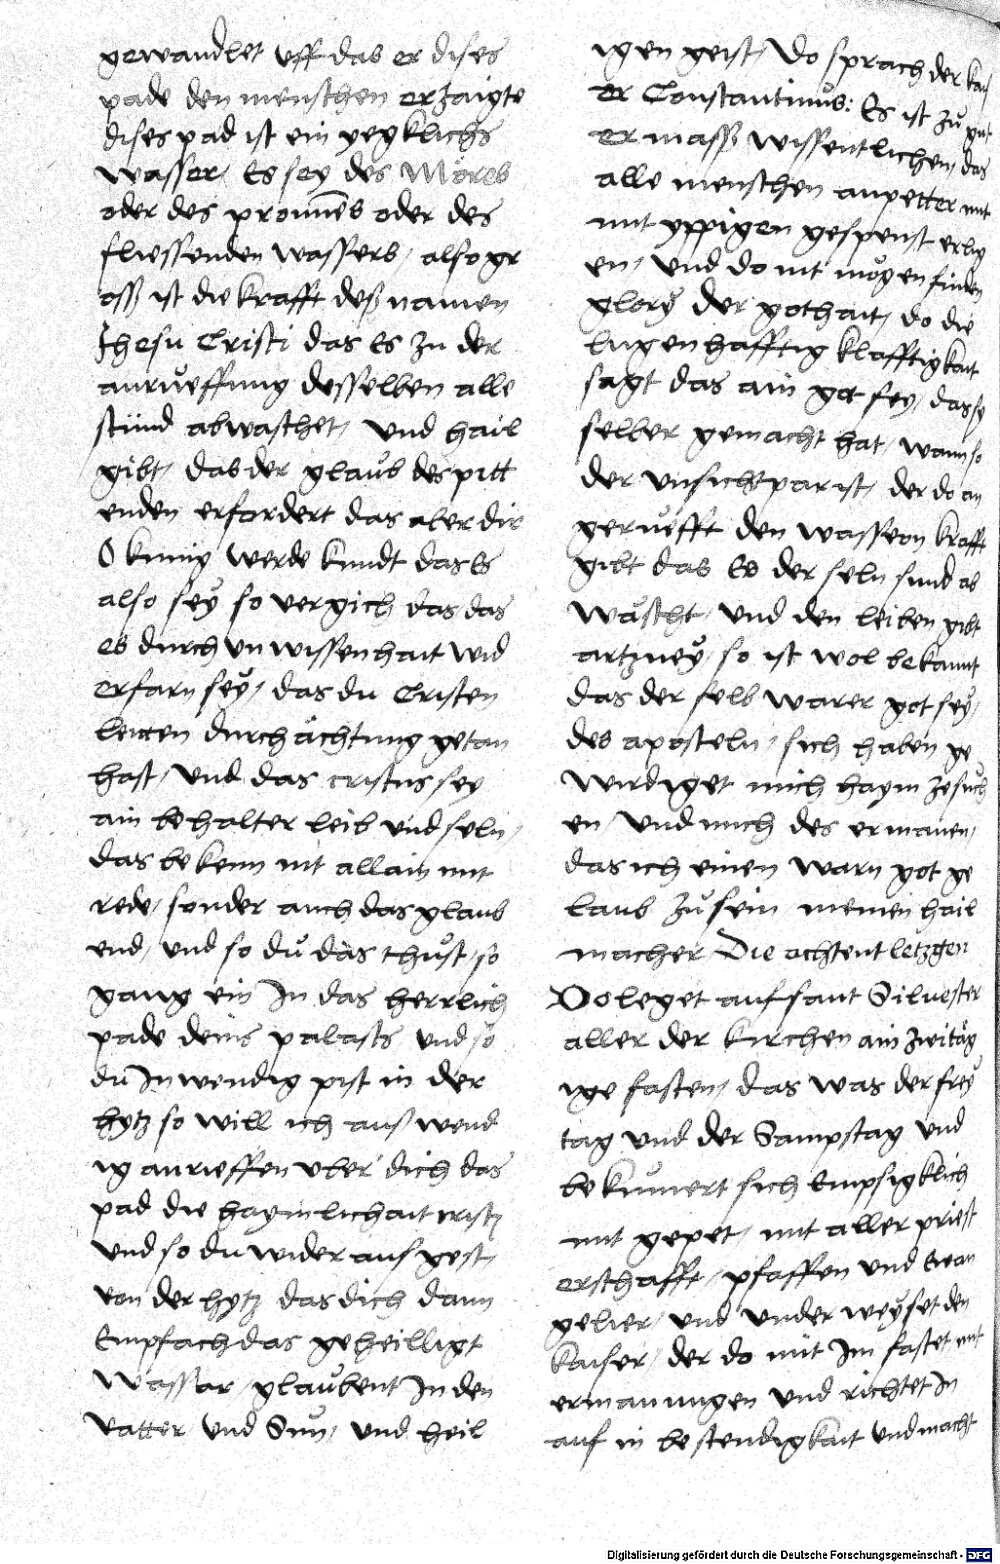 gewandlet uff das er dises
pade den menschen erzaigte
dises pad ist ein yegklichs
wasser / Es sey des Möres
oder des pronnēs oder des
fliessenden wassers / also gr
oss ist die krafft deß namen
Jhesu Cristi das Es zu der
anrueffung desselben alle
stünd abwaschet / und hail
gibt / das der glaub des pitt
enden erfordert das aber dir
O kunig werde kundt das Es
also sey so vergich das das
es durch un wissenhait wid
erfarn sey / das du Cristen
leuten durchächtung getan
hast / und das cristus sey
ain behalter leib und seln /
das bekenn nit allain mit
rede / sonder auch das glaub
end / und so du das thust / so
gang ein In das herrlich
pade deins palasts und so
du Inwendig pist in der
hytz so will ich auß wend
ig anrieffen uber dich das
pad die haymlichait cristj
und so du wider auf gest /
von der hytz das dich dann
Empfach das geheilligt
Wasser / glaubent In den
vatter und Sun / und heil
igen geist / Do sprach der kais
er Constantinus: Es ist zu gut
er mass wissentlichen / das
alle menschen anpetter mit
mit yppigen gespenst erlig
en / und do nit mögen finden
glory der gothait / do die
lugenhafftig klafftigkait
sagt das ain got sey / das se
selber gemacht hat / wann so
der unsichtpar ist / der do an
gerüefft den wassern krafft
gibt das Es der seln sund ab
wascht / und den leiben gibt
artzney / so ist wol bekannt
das der selb warer got sey /
des aposteln / sich haben ge
wirdiget mich haym zesuch
en / und mich des ermanen /
das ich einen warn got ge
laub zu sein meinen hail
macher Die achtent letzgen
Do leget auf sant Siluester
aller der kirchen ain zwitäg
ige fasten / das was der frey
tag und der Sampstag und
bekumert sich Empsigklich
mit gepet / mit aller priest
erschafft / pfaffen und Ewan
gelier / und under weyset den
kaiser / der do mit Im fastet mit
ermanungen und richtet In
auf in bestendigkait und macht
Digitalisierung gefördert durch die Deutsche Forschungsgemeinschaft - DFG